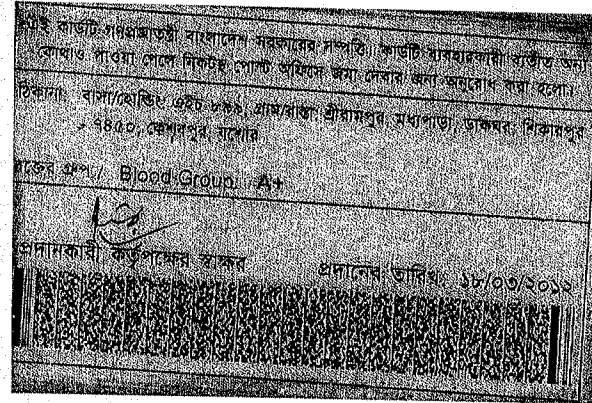 এই কার্ডটি গণপ্রজাতন্ত্রী বাংলাদেশ সরকারের সম্পত্তি। কার্ডটি ব্যবহারকারী ব্যতীত অন্য
কোথাও পাওয়া গেলে নিকটস্থ পোস্ট অফিসে জমা দেবার জন্য অনুরোধ করা হলো।
ঠিকানা: বাসা/হোল্ডিং: এইচ ৮৬২, গ্রাম/রাস্তা: শ্রীরামপুর, মধ্যপাড়া, ডাকঘর:
- ৭৪৫০, কেশবপুর, যশোর
রক্তের গ্রুপ / Blood Group: A+
প্রদানকারী কর্তৃপক্ষের স্বাক্ষর
প্রদানের তারিখ: ১৮/০৩/২০১২